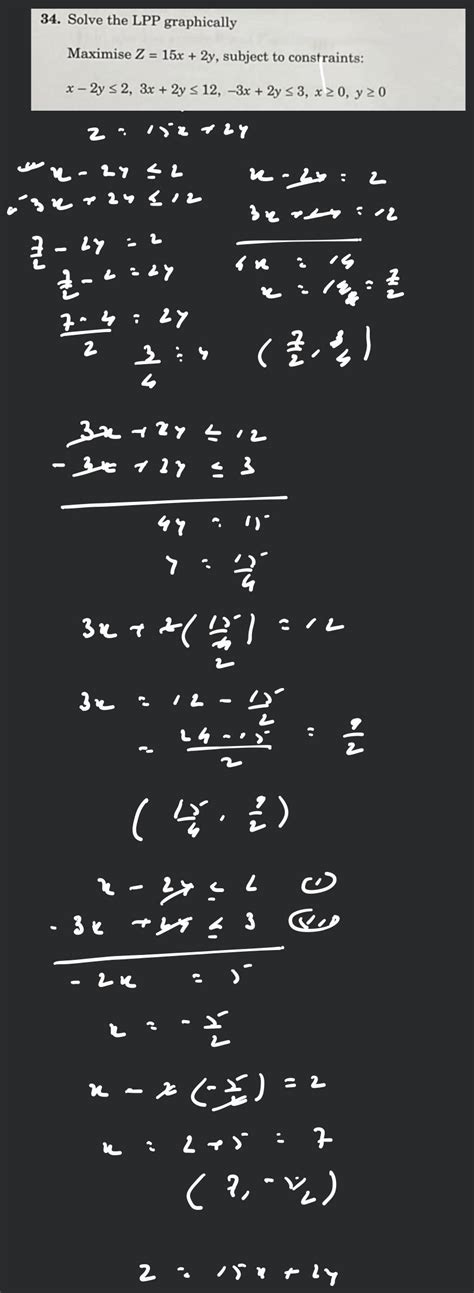 34. Solve the LPP graphically
Maximise Z = 15x + 2y, subject to constraints:
x − 2y ≤ 2, 3x + 2y ≤ 12, −3x + 2y ≤ 3, x ≥ 0, y ≥ 0
Z = 15x + 2y
x − 2y ≤ 2
3x + 2y ≤ 12
7/2 − 2y = 2
7/2 − 2 = 2y
(7 − 4)/2 = 2y
3/4 = y
x − 2y = 2
3x + 2y = 12
4x = 14
x = 14/4 = 7/2
(7/2, 3/4)
3x + 2y ≤ 12
− 3x + 2y ≤ 3
4y = 15
y = 15/4
3x + 2(15/4) = 12
2
3x = 12 − 15/2
= (24 − 15)/2 = 9/2
(15/4, 9/2)
x − 2y ≤ 2
- 3x + 2y ≤ 3
- 2x = 5
x = - 5/2
x − 2(-5/2) = 2
x = 2 + 5 = 7
(7, -5/2)
Z = 15x + 2y